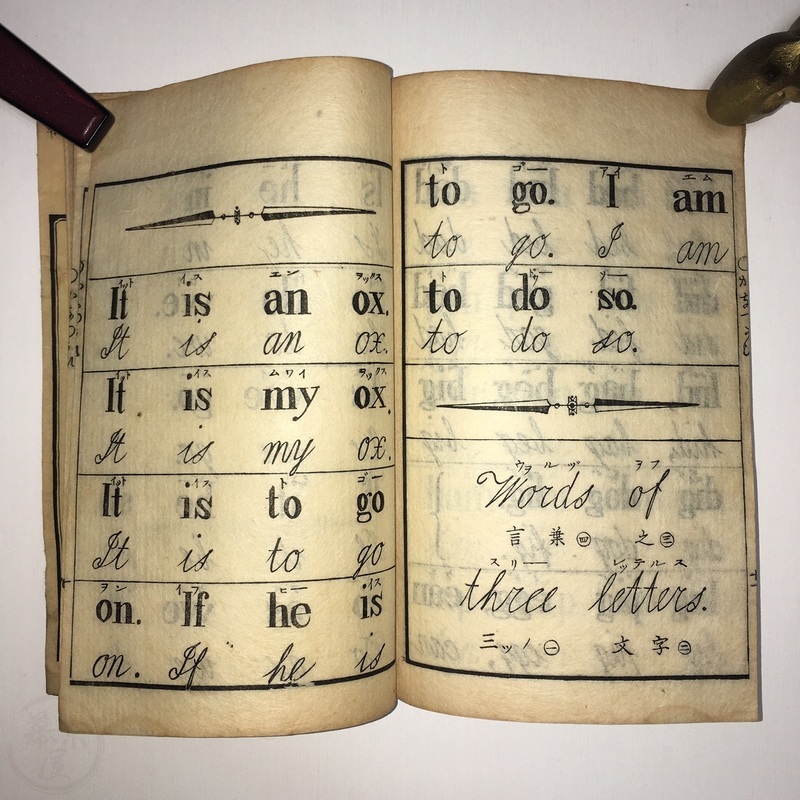 イット イス エン ヲックス
It is an ox.
It is an ox.
イット イス ムワイ ヲックス
It is my ox.
It is my ox.
イット イス ト ゴー
It is to go
It is to go
ヲン イフ ヒー イス
on. If he is
on. If he is
ト ゴー アイ エム
to go. I am
to go. I am
ト ソー
to do so.
to do so.
ウヲルヅ ヲフ
Words of
言葉㊃ 之㊂
スリー レッテルス
three letters.
三ッノ㊀ 文字㊁